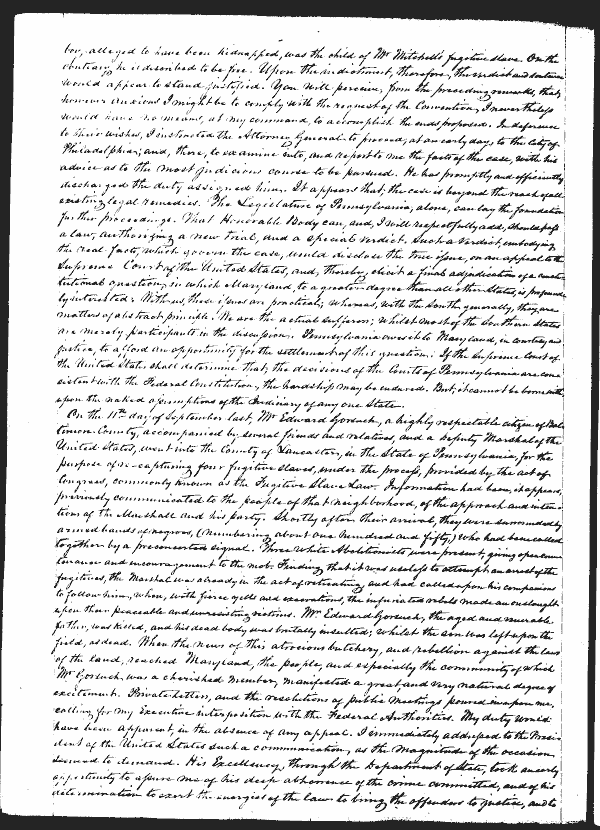 boy, alleged to have been kidnapped, was the child of Mr Mitchell's fugitive slave. On the
contrary, he is described to be free. Upon the indictment, therefore, the verdict and sentence
would appear to stand justified. You will perceive, from the preceding remarks, that,
however anxious I might be to comply with the request of the Convention, I nevertheless
would have no means, at my command, to accomplish the ends proposed. In deference
to their wishes, I instructed the Attorney General to proceed, at an early day, to the City of
Philadelphia; and, there, to examine into, and report to me the facts of the case, with his
advice as to the most judicious course to be pursued. He has promptly and efficiently
discharged the duty assigned him. It appears that, the case is beyond the reach of all
existing legal remedies. The Legislature of Pennsylvania, alone, can lay the foundation
for further proceedings. That Honorable Body can, and, I will respectfully add, should pass
a law, authorizing a new trial, and a special verdict. Such a verdict, embodying
the real facts, which govern the case, would disclose the true issue, on an appeal to the
Supreme Court of the United States, and, thereby, elicit a final adjudication of a consti-
tutional question, in which Maryland, to a greater degree than all other States, is profound-
ly interested. With us, these issues are practical; whereas, with the South generally, they are
matters of abstract principle. We are the actual sufferers; whilst most of the Southern States
are merely participants in the discussion. Pennsylvania owes it to Maryland, in courtesy and
justice, to afford an opportunity for the settlement of this question. If the Supreme Court of
the United States shall determine that, the decisions of the Courts of Pennsylvania are con-
sistent with the Federal Constitution, the hardship may be endured. But, it cannot be borne with
upon the naked assumptions of the Judiciary of any one State.
On the 11th day of September last, Mr Edward Gorsuch, a highly respectable citizen of Balti-
more County, accompanied by several friends and relatives, and a Deputy Marshal of the
United States, went into the County of Lancaster, in the State of Pennsylvania, for the
purpose of re-capturing four fugitive slaves, under the process, provided by the act of
Congress, commonly known as the Fugitive Slave Law. Information had been, it appears,
previously communicated to the people of that neighborhood, of the approach and inten-
tions of the Marshall and his party. Shortly after their arrival, they were surrounded by
armed bands of negroes, (numbering about one hundred and fifty,) who had been called
together by a preconcerted signal. Three white Abolitionists were present, giving open coun-
tenance and encouragement to the mob. Finding that it was useless to attempt an arrest of the
fugitives, the Marshal was already in the act of retreating, and had called upon his companions
to follow him, when, with fierce yells and execrations, the infuriated rebels made an onslaught
upon their peaceable and unresisting victims. Mr. Edward Gorsuch, the aged and venerable
father, was killed, and his dead body was brutally insulted; whilst the son was left upon the
field, as dead. When the news of this atrocious butchery, and rebellion against the laws
of the land, reached Maryland, the people, and especially the community of which
Mr Gorsuch was a cherished member, manifested a great, and very natural degree of
excitement. Private letters, and the resolutions of public Meetings poured in upon me,
calling for my Executive interposition with the Federal Authorities. My duty would
have been apparent, in the absence of any appeal. I immediately addressed to the Presi-
dent of the United States such a communication, as the magnitude of the occasion
seemed to demand. His Excellency, through the Department of State, took an early
opportunity to assure me of his deep abhorrence of the crime committed, and of his
determination to exert the energies of the law to bring the offenders to justice, and to